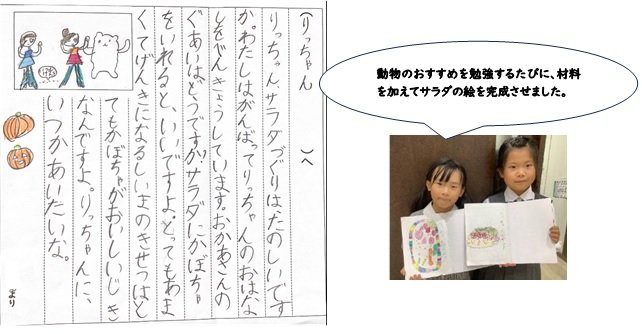 (りっちゃん )へ
りっちゃん、サラダづくりはたのしいです
か。わたしはがんばってりっちゃんのおはな
しをべんきょうしています。おかあさんの
ぐあいはどうですか?サラダにかぼちゃ
をいれると、いいですよ。とってもあま
くてげんきになるしいまのきせつはと
てもかぼちゃがおいしいじき
なんですよ。りっちゃんに、
いつかあいたいな。
より
動物のおすすめを勉強するたびに、材料
を加えてサラダの絵を完成させました。